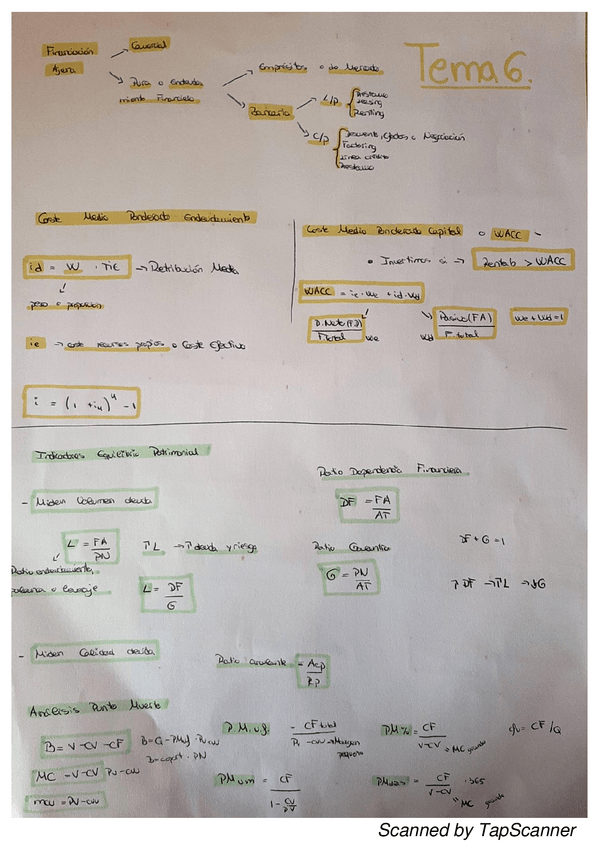 Tema 6.
Financiación Ajena
Comercial
Pura o Endeudamiento Financiero
Empréstitos o de Mercado
Bancaria
L/p
Préstamo
Leasing
Renting
C/p
Descuento, Efectos o Negociación
Factoring
Línea crédito
Préstamo
Coste Medio Ponderado Endeudamiento
id = W · TiE → Retribución Media
peso o proporción
ie → coste recursos propios o Coste Efectivo
i = (1 + i4)^4 - 1
Coste Medio Ponderado Capital o WACC
• Invertimos si → Rentab > WACC
WACC = ie · We + id · Wd
P. Neto (FP) / F total We
Wd Pasivo (FA) / F total
We + Wd = 1
Indicadores Equilibrio Patrimonial
- Miden Volumen deuda
L = FA / PN
↑L → ↑ deuda y riesgo
Ratio endeudamiento,
o leverage
L = DF / G
Ratio Dependencia Financiera
DF = FA / AT
Ratio Garantía
G = PN / AT
DF + G = 1
↑ DF → ↑L → ↓G
- Miden Calidad deuda
Análisis Punto Muerto
B = V - CV - CF
MC = V - CV
mcu = PV - cvu
P.M. u.f. = CF total
PM% = CF / V - CV
MC grande
cfu = CF / Q
PM um = CF / 1 - CV / PV
CF / V - CV · 365
MC grande
Scanned by TapScanner